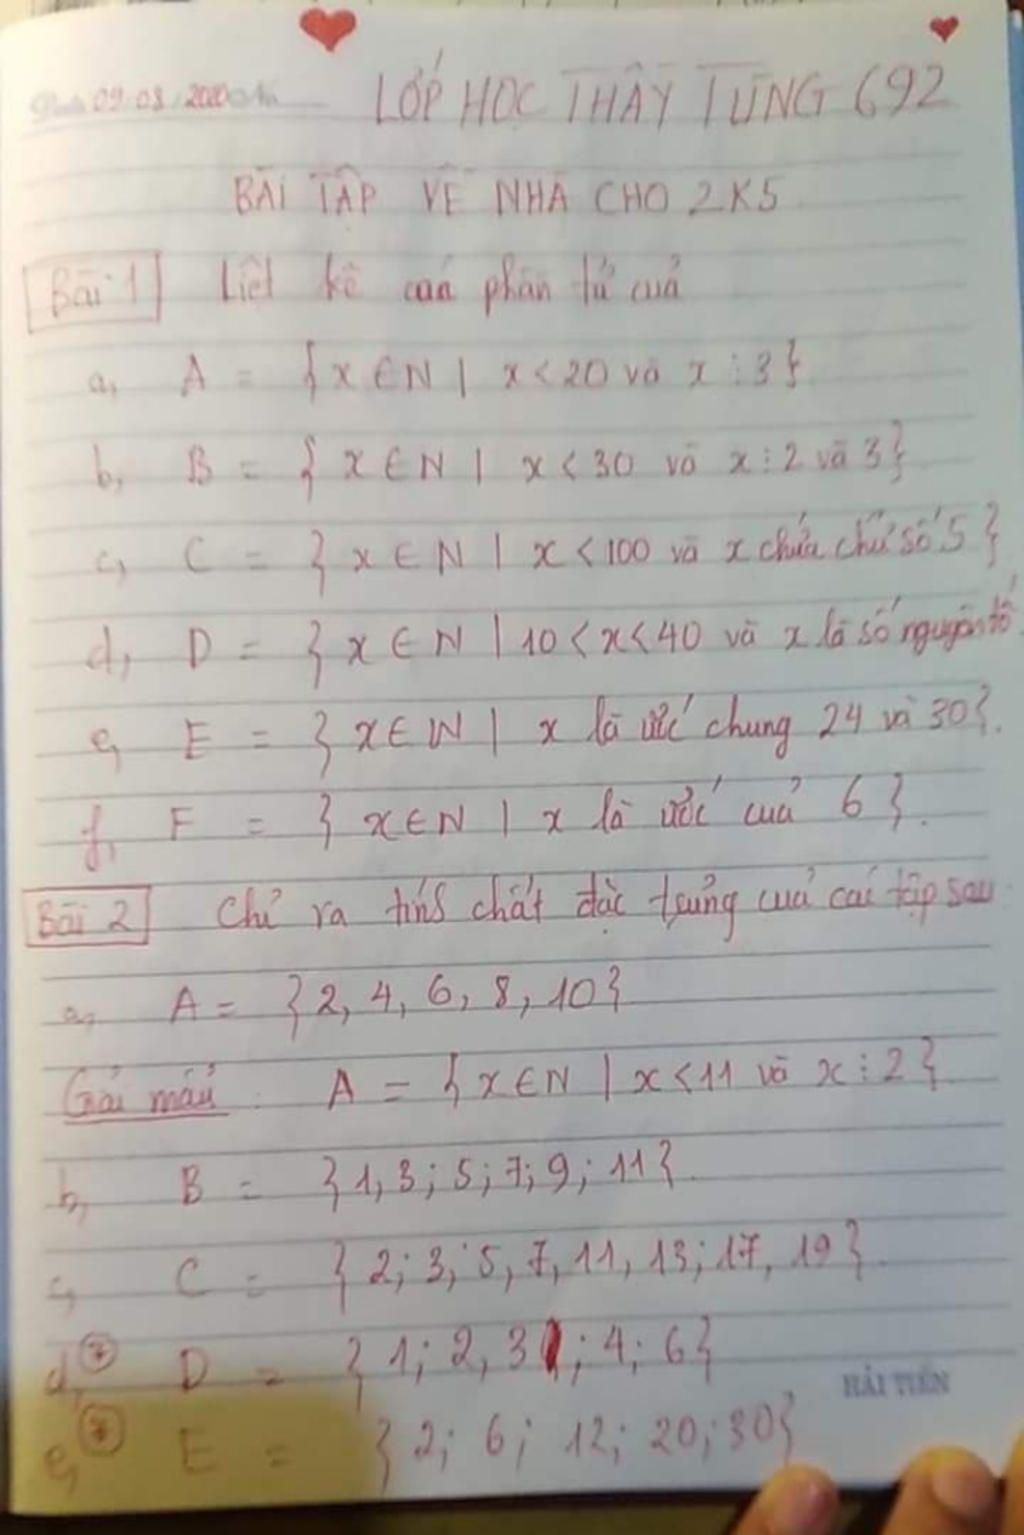 09.08.2020
LỚP HỌC THẦY TÙNG 692
BÀI TẬP VỀ NHÀ CHO 2K5
Bài 1 Liệt kê các phần tử của
a, A = {x ∈ N | x < 20 và x ⋮ 3}
b, B = {x ∈ N | x < 30 và x ⋮ 2 và 3}
c, C = {x ∈ N | x < 100 và x chứa chữ số 5}
d, D = {x ∈ N | 10 < x < 40 và x là số nguyên tố
e, E = {x ∈ N | x là ước chung 24 và 30}.
f, F = {x ∈ N | x là ước của 6}.
Bài 2 Chỉ ra tính chất đặc trưng của các tập sau.
a, A = {2, 4, 6, 8, 10}
Giải mẫu: A = {x ∈ N | x < 11 và x ⋮ 2}
b, B = {1, 3; 5; 7; 9; 11}.
c, C = {2; 3; 5, 7, 11, 13; 17, 19}.
d, * D = {1; 2, 3; 4; 6}
e, * E = {2; 6; 12; 20; 30}
HẢI TIẾN